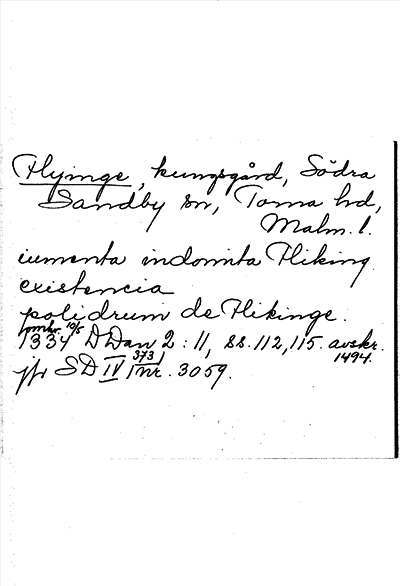 Flyinge, kungsgård, Södra
Sandby sn, Torna hd,
Malm. l.
iumenta indomita Fliking
existencia
polidrum de Flikinge.
1334 10/5 DDan 2:11, ss. 112, 115. avskr. 1494.
jfr SD IV 373 nr. 3059.